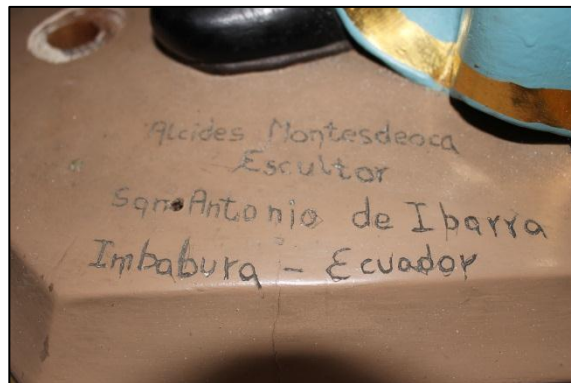 Alcides Montesdeoca
Escultor
San Antonio de Ibarra
Imbabura - Ecuador